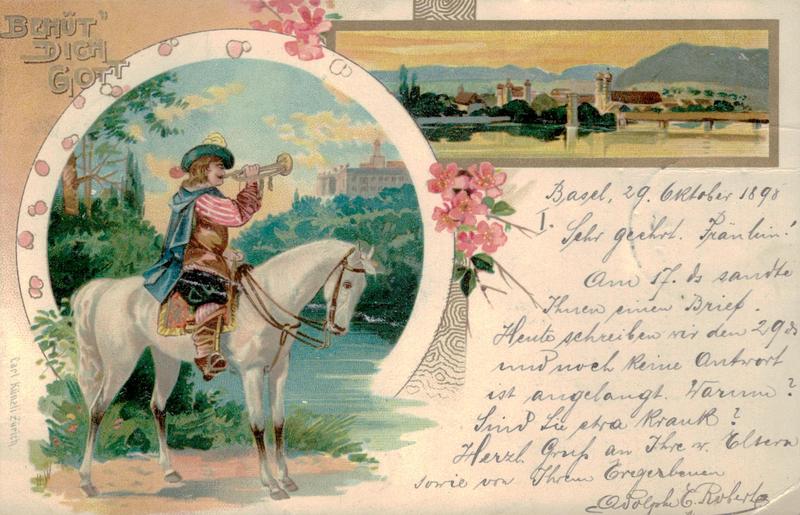 BEHÜT
DICH
GOTT
Basel, 29. Oktober 1898
I. Sehr geehrt. Fräulein!
Am 17. ds sandte
Ihnen einen Brief.
Heute schreiben wir den 29 ds
und noch keine Antwort
ist angelangt. Warum?
Sind Sie etwa krank?
Herzl. Gruß an Ihre w. Eltern
sowie von Ihrem Eregerbenen
Adolphe E. Robert
Carl Künzli Zürich